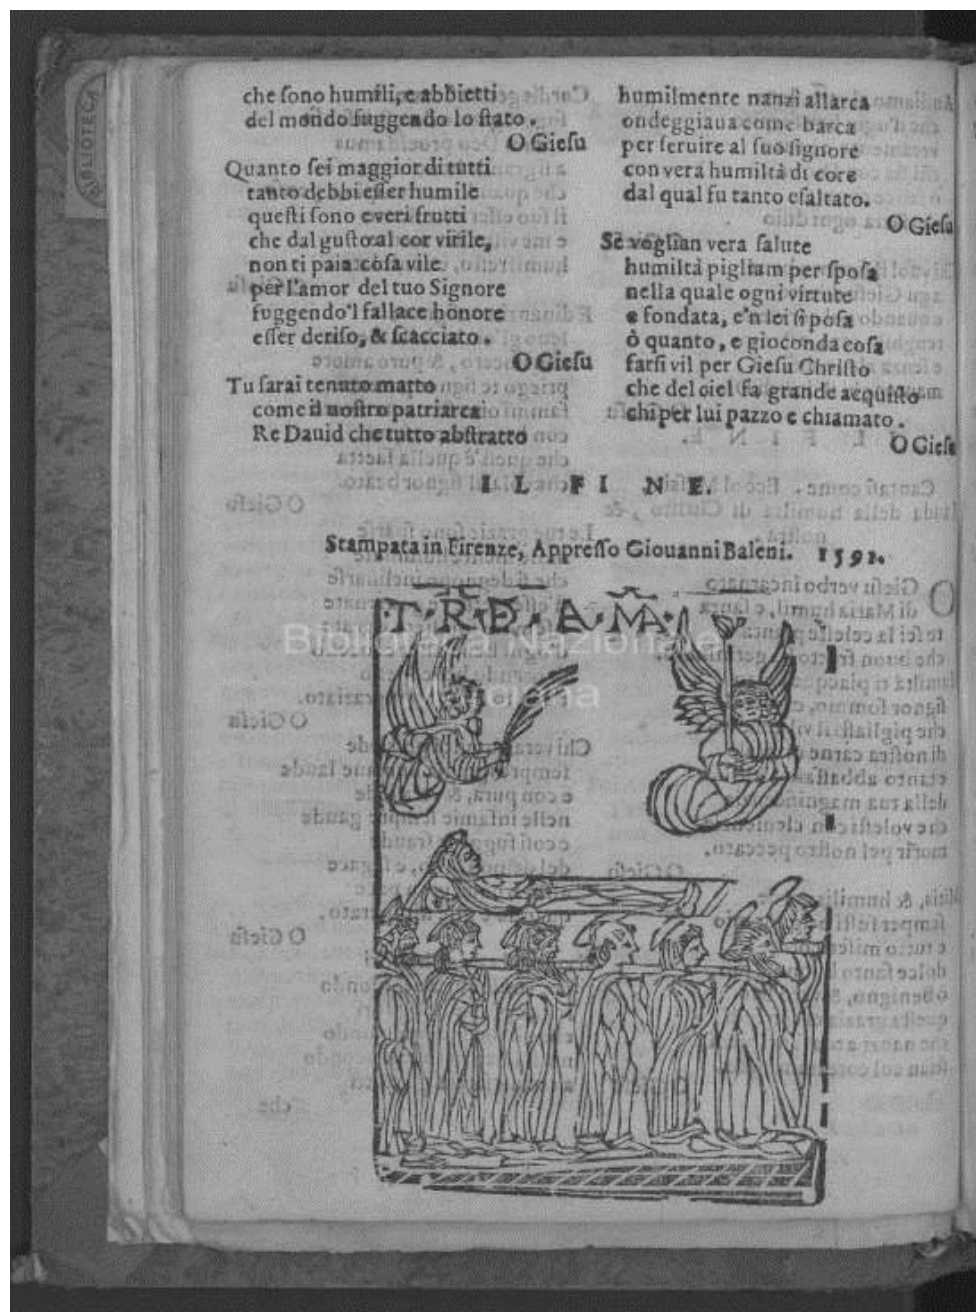 che ſono humili, e abbietti
del mondo fuggendo lo ſtato.
O Gieſu
Quanto ſei maggior di tutti
tanto debbi eſſer humile
queſti ſono e veri frutti
che dal guſto al cor virile,
non ti paia coſa vile
per l'amor del tuo Signore
fuggendo'l fallace honore
eſſer deriſo, & ſcacciato.
O Gieſu
Tu ſarai tenuto matto
come il noſtro patriarca
Re Dauid che tutto abſtratto
humilmente nanzi allarca
ondeggiaua come barca
per ſeruire al ſuo ſignore
con vera humiltà di core
dal qual fu tanto eſaltato.
O Gieſu
Se voglian vera ſalute
humiltà pigliam per ſpoſa
nella quale ogni virtute
e fondata, e'n lei ſi poſa
ò quanto, e gioconda coſa
farſi vil per Gieſu Chriſto
che del ciel fa grande acquiſto
chi per lui pazzo e chiamato.
O Gieſu
IL FINE.
Stampata in Firenze, Appreſſo Giouanni Baleni. 1591.
Biblioteca Nazionale
BIBLIOTECA